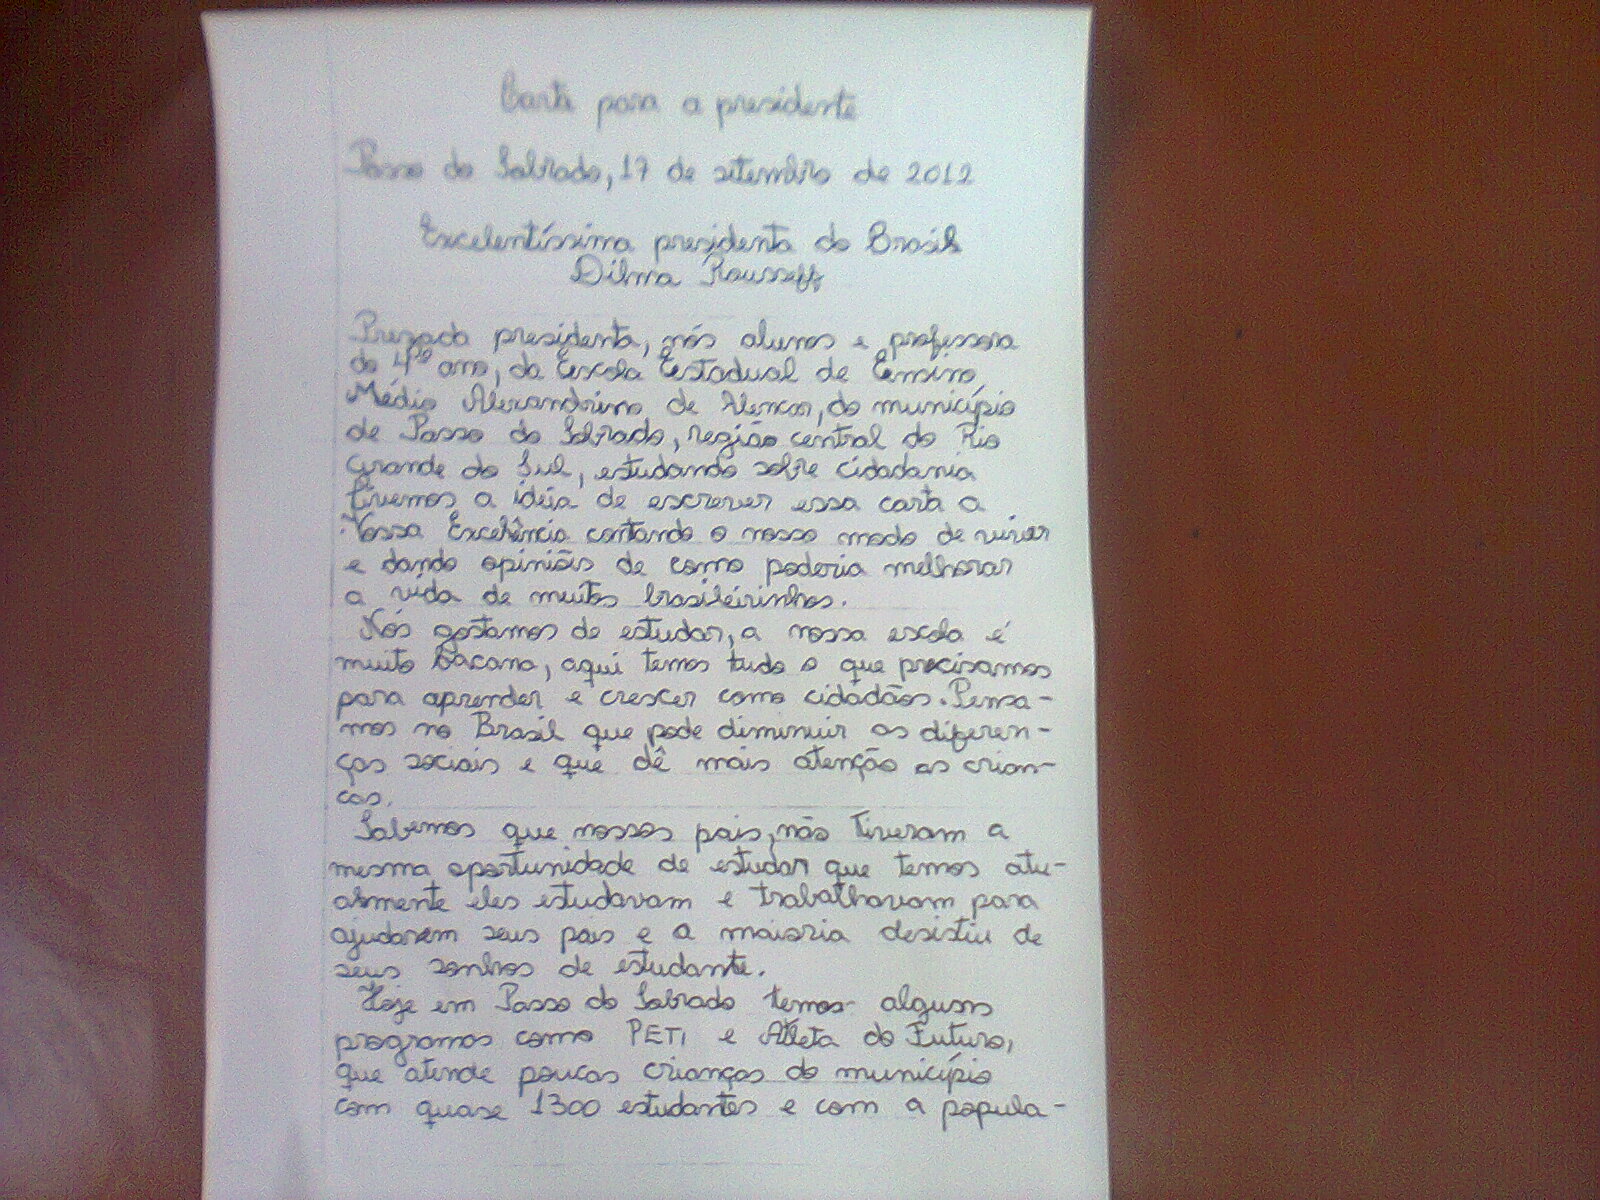 Carta para a presidente
Passo do Sobrado, 17 de setembro de 2012
Excelentíssima presidenta do Brasil
Dilma Rousseff
Prezada presidenta, nós alunos e professora
do 4º ano, da Escola Estadual de Ensino
Médio Alexandrino de Alencar, do município
de Passo do Sobrado, região central do Rio
Grande do Sul, estudando sobre cidadania
tivemos a idéia de escrever essa carta a
Vossa Excelência contando o nosso modo de viver
e dando opiniões de como poderia melhorar
a vida de muitos brasileirinhos.
Nós gostamos de estudar, a nossa escola é
muito bacana, aqui temos tudo o que precisamos
para aprender e crescer como cidadãos. Pensa-
mos no Brasil que pode diminuir as diferen-
ças sociais e que dê mais atenção as crian-
ças.
Sabemos que nossos pais, não tiveram a
mesma oportunidade de estudar que temos atu-
almente eles estudavam e trabalhavam para
ajudarem seus pais e a maioria desistiu de
seus sonhos de estudante.
Hoje em Passo do Sobrado temos alguns
programas como PETI e Atleta do Futuro,
que atende poucas crianças do município
com quase 1300 estudantes e com a popula-